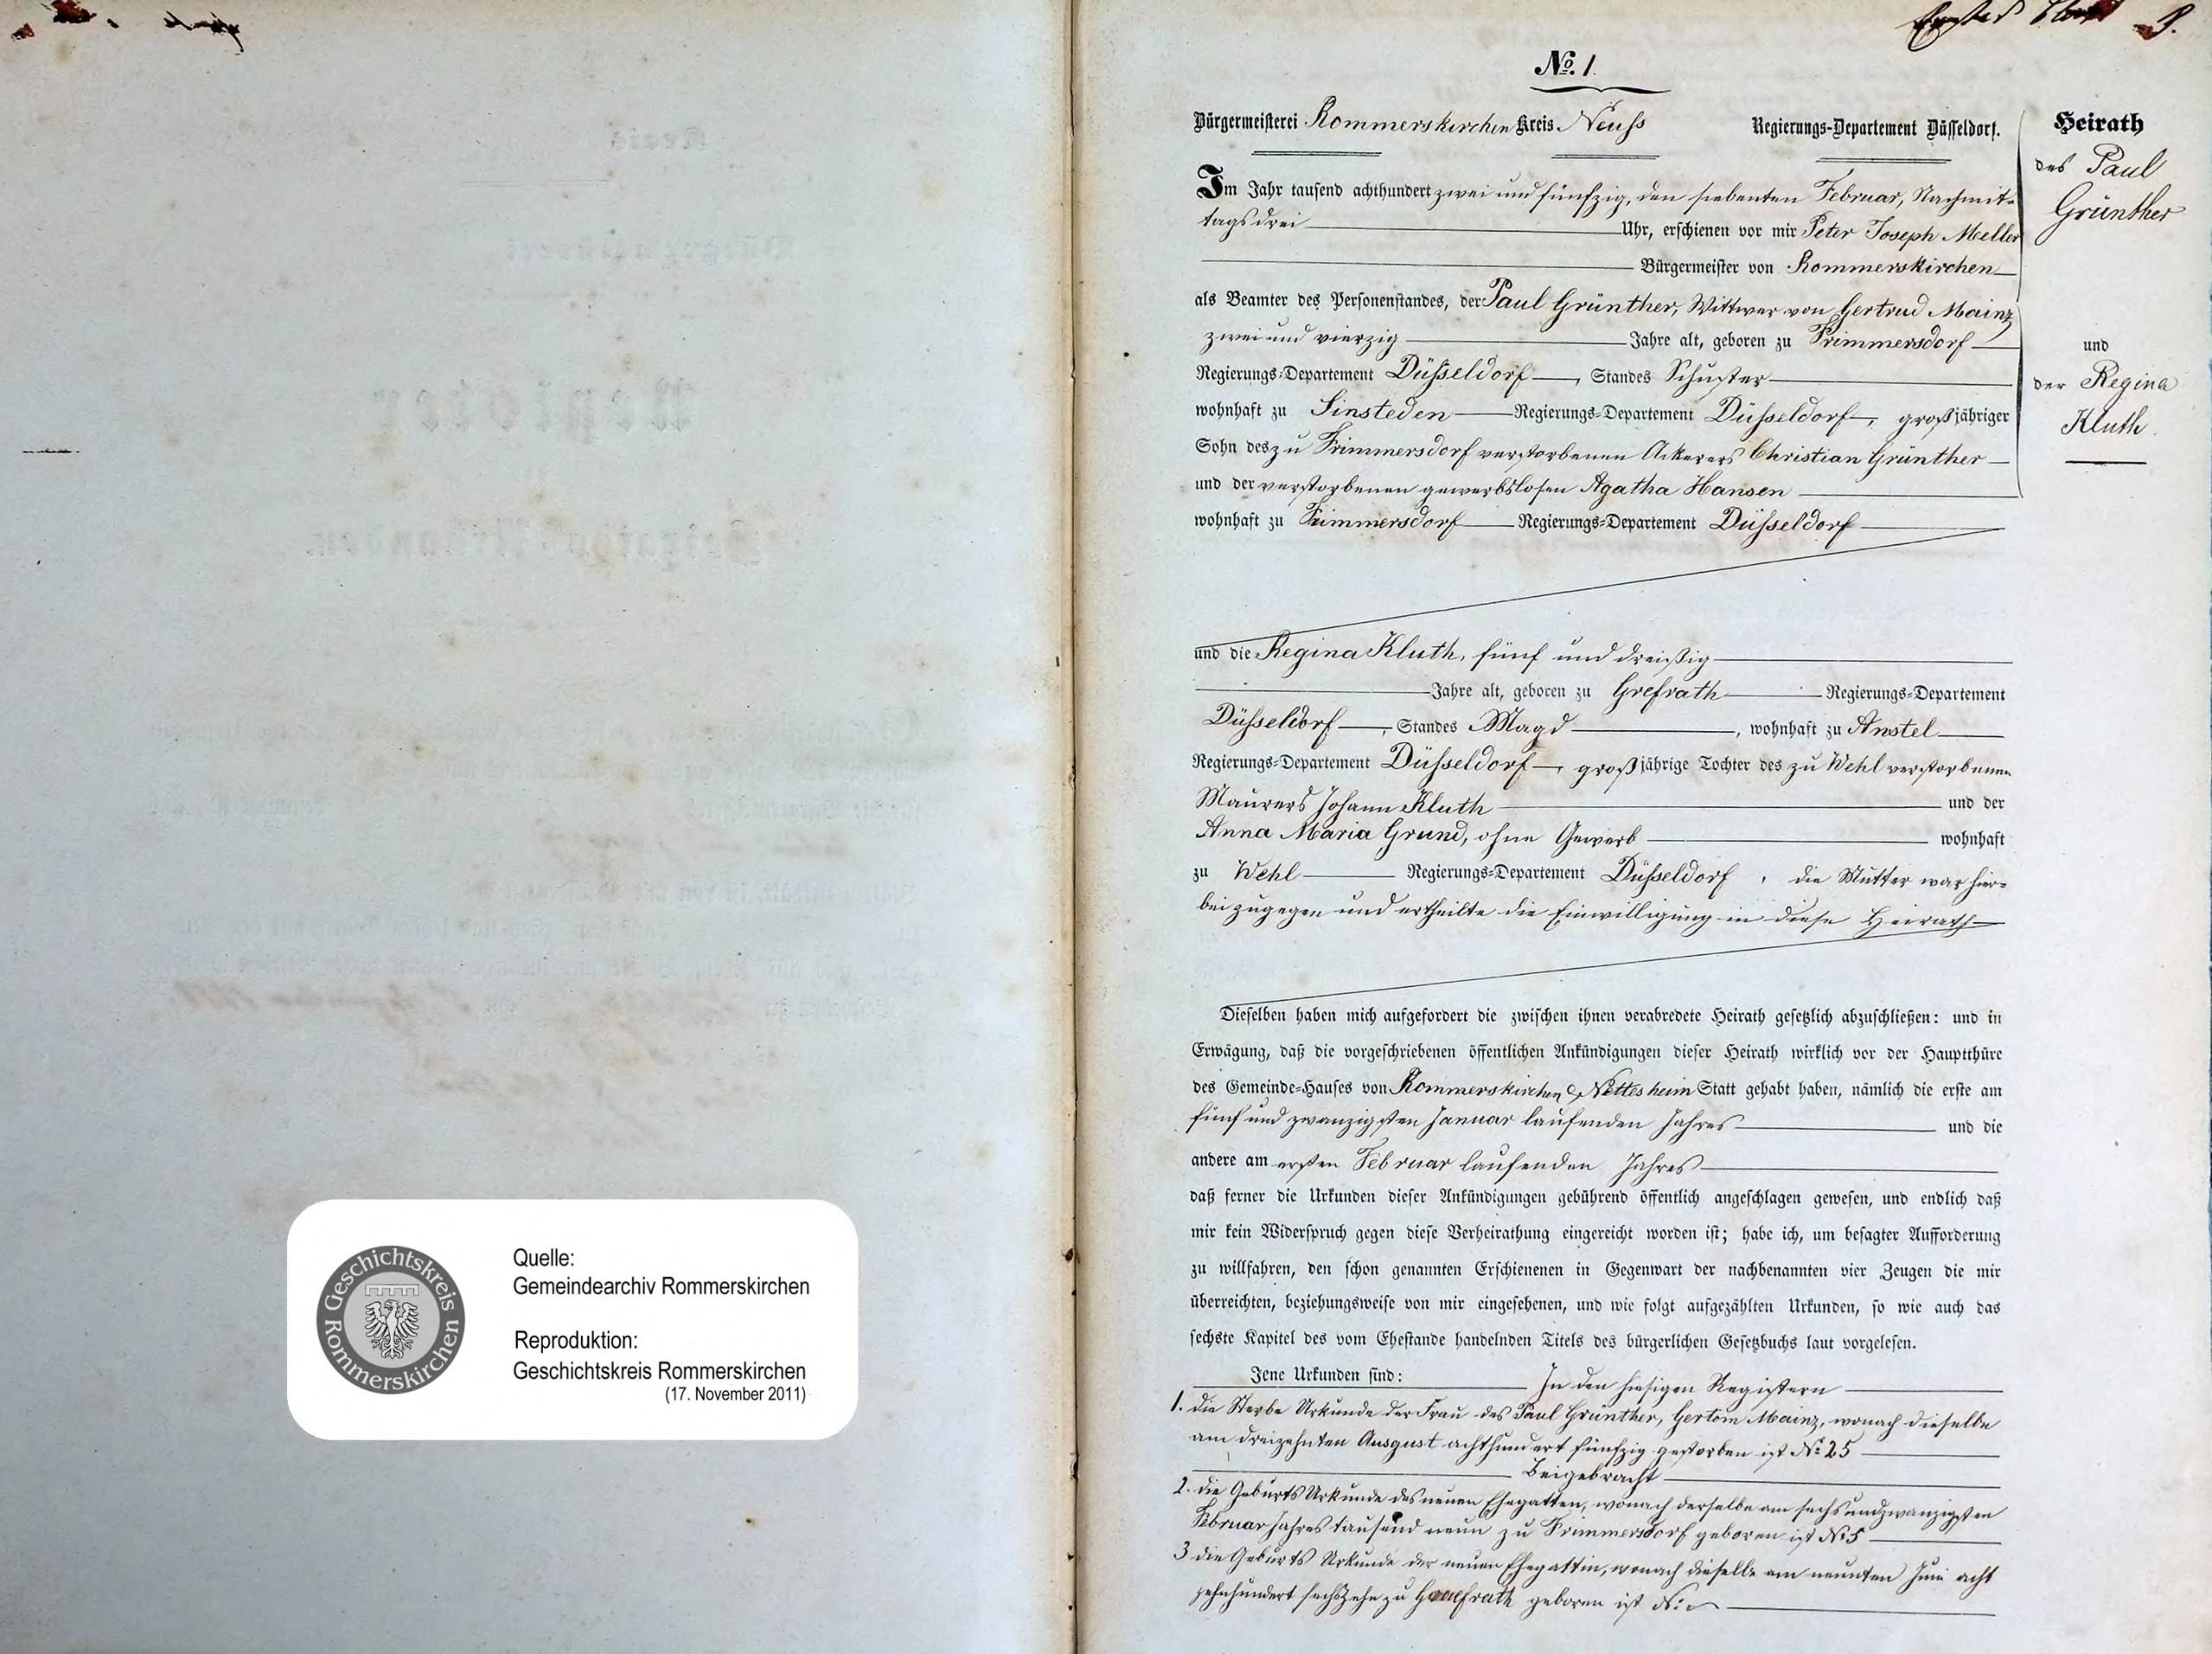 Erstes Blatt
No. 1.
Bürgermeisterei Rommerskirchen Kreis Neuss Regierungs-Departement Düsseldorf.
Heirath
des Paul
Grünther
und
der Regina
Kluth.
Im Jahr tausend achthundert zwei und fünfzig, den siebenten Februar, Nachmit-
tags drei Uhr, erschienen vor mir Peter Joseph Meller
Bürgermeister von Rommerskirchen
als Beamter des Personenstandes, der Paul Grünther, Wittwer von Gertrud Mainz
zwei und vierzig Jahre alt, geboren zu Frimmersdorf
Regierungs-Departement Düsseldorf, Standes Schuster
wohnhaft zu Sinsteden Regierungs-Departement Düsseldorf, großjähriger
Sohn des zu Frimmersdorf verstorbenen Ackerers Christian Grünther
und der verstorbenen gewerblosen Agatha Hansen
wohnhaft zu Frimmersdorf Regierungs-Departement Düsseldorf
und die Regina Kluth, fünf und dreißig
Jahre alt, geboren zu Grefrath Regierungs-Departement
Düsseldorf, Standes Magd, wohnhaft zu Anstel
Regierungs-Departement Düsseldorf, großjährige Tochter des zu Wehl verstorbenen
Maurers Johann Kluth und der
Anna Maria Grund, ohne Gewerb wohnhaft
zu Wehl Regierungs-Departement Düsseldorf, die Mutter war hier-
bei zugegen und ertheilte die Einwilligung in diese Heirath
Dieselben haben mich aufgefordert die zwischen ihnen verabredete Heirath gesetzlich abzuschließen: und in
Erwägung, daß die vorgeschriebenen öffentlichen Ankündigungen dieser Heirath wirklich vor der Hauptthüre
des Gemeinde-Hauses von Rommerskirchen & Nettesheim Statt gehabt haben, nämlich die erste am
fünf und zwanzigsten Januar laufenden Jahres und die
andere am ersten Februar laufenden Jahres
daß ferner die Urkunden dieser Ankündigungen gebührend öffentlich angeschlagen gewesen, und endlich daß
mir kein Widerspruch gegen diese Verheirathung eingereicht worden ist; habe ich, um besagter Aufforderung
zu willfahren, den schon genannten Erschienenen in Gegenwart der nachbenannten vier Zeugen die mir
überreichten, beziehungsweise von mir eingesehenen, und wie folgt aufgezählten Urkunden, so wie auch das
sechste Kapitel des vom Ehestande handelnden Titels des bürgerlichen Gesetzbuchs laut vorgelesen.
Jene Urkunden sind: In den hiesigen Registern
1. die Sterbe Urkunde der Frau des Paul Grünther, Mainz, wonach dieselbe
am dreizehnten August achthundert fünfzig gestorben ist No 25
Beigebracht
2. die Geburts Urkunde des neuen Ehegatten, wonach derselbe am sechs und zwanzigsten
Februar Jahres tausend neun zu Frimmersdorf geboren ist No 5
3 die Geburts Urkunde der neuen Ehegattin, wonach dieselbe am neunten Juni acht
zehnhundert sechszehn zu geboren ist No
Geschichtskreis Rommerskirchen
Quelle:
Gemeindearchiv Rommerskirchen
Reproduktion:
Geschichtskreis Rommerskirchen
(17. November 2011)